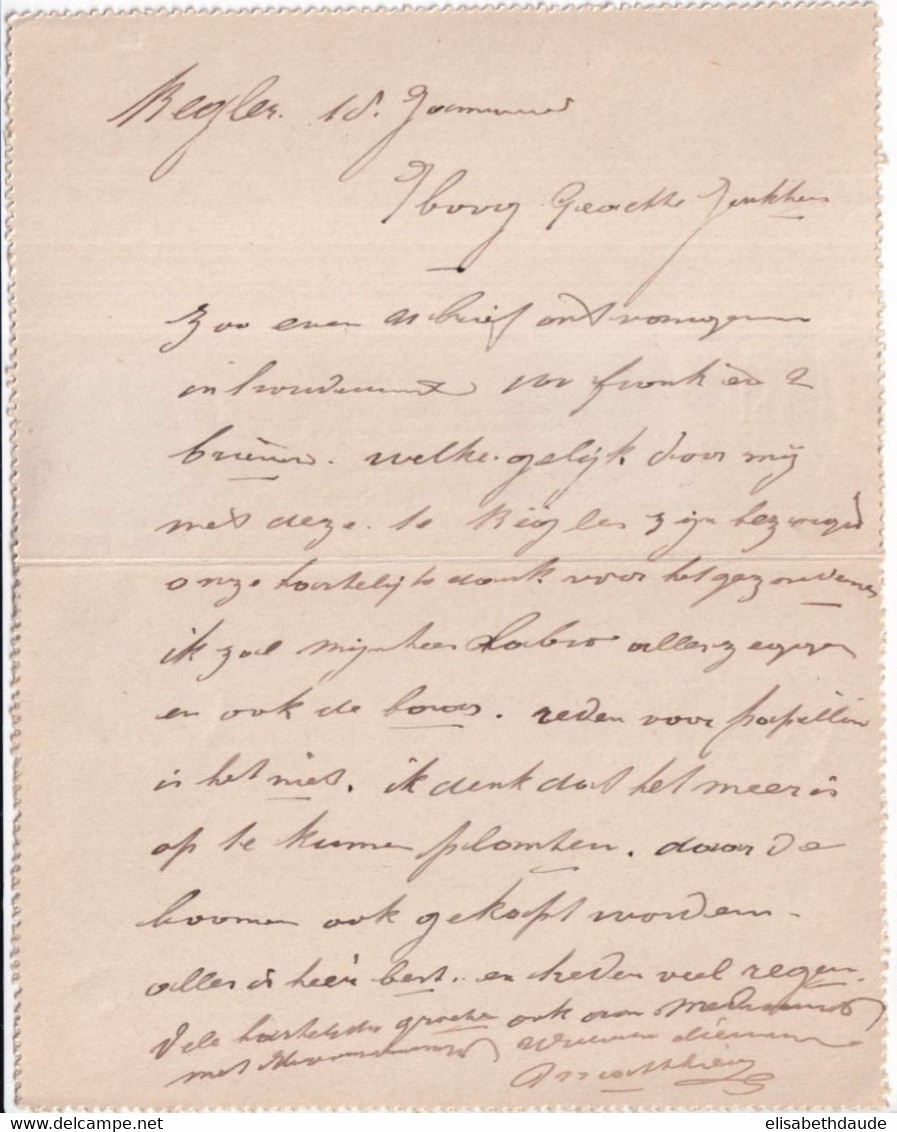 Regles. 18. Januari
Hoog Geachte Jonkheer
Zoo even As brief ontvangen
inhoudend 100 frank en 2
brieven. welke gelijk door mij
met deze. te Regles zijn bezorgd
onze hartelijke dank voor het gezondene
ik zal mijnheer Labro alles zeggen
en ook de . reden voor papillon
is het niet. ik denk dat het meer is
op te kunnen planten. daar de
boomen ook gekapt worden
alles is hier best. en heden veel regen.
Vele hartelijke groeten ook aan
met dienaar